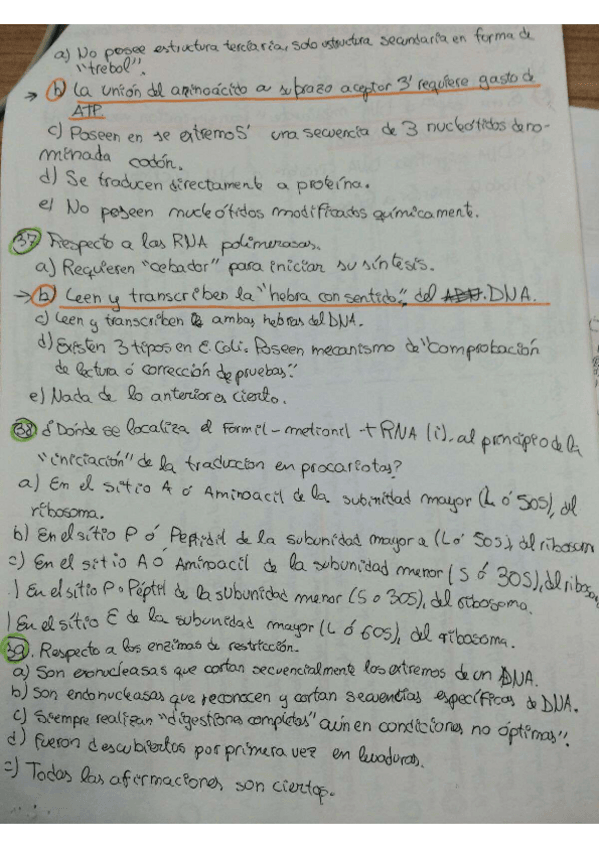 a) No posee estructura terciaria, solo estructura secundaria en forma de
"trebol".
→ b) La unión del aminoácido a su brazo aceptor 3' requiere gasto de
ATP.
c) Poseen en se extremo 5' una secuencia de 3 nucleótidos deno-
minada codón.
d) Se traducen directamente a proteína.
e) No poseen nucleótidos modificados químicamente.
37 Respecto a las RNA polimerasas.
a) Requieren "cebador" para iniciar su síntesis.
→ b) Leen y transcriben la "hebra con sentido", del DNA.
c) Leen y transcriben ambas hebras del DNA.
d) Existen 3 tipos en E Coli. Poseen mecanismo de "comprobación
de lectura ó corrección de pruebas".
e) Nada de lo anteriores cierto.
38 ¿Dónde se localiza el Formil-metionil tRNA (i), al principio de la
"iniciación" de la traducción en procariotas?
a) En el sitio A ó Aminoacil de la subunidad mayor (L ó 50S), del
ribosoma.
b) En el sitio P ó Peptidil de la subunidad mayor a (L ó 50S), del ribosom
c) En el sitio A Ó Aminoacil de la subunidad menor (S ó 30S), del ribosom
) En el sitio P o Peptil de la subunidad menor (S o 30S), del ribosoma.
) En el sitio E de la subunidad mayor (L ó 60S), del ribosoma.
39. Respecto a los enzimas de restricción.
a) Son exonucleasas que cortan secuencialmente los extremos de un DNA.
b) Son endonucleasas que reconocen y cortan secuencias específicas de DNA.
c) Siempre realizan "digestiones completas" aún en condiciones no óptimas".
d) Fueron descubiertos por primera vez en levaduras.
e) Todas las afirmaciones son ciertas.